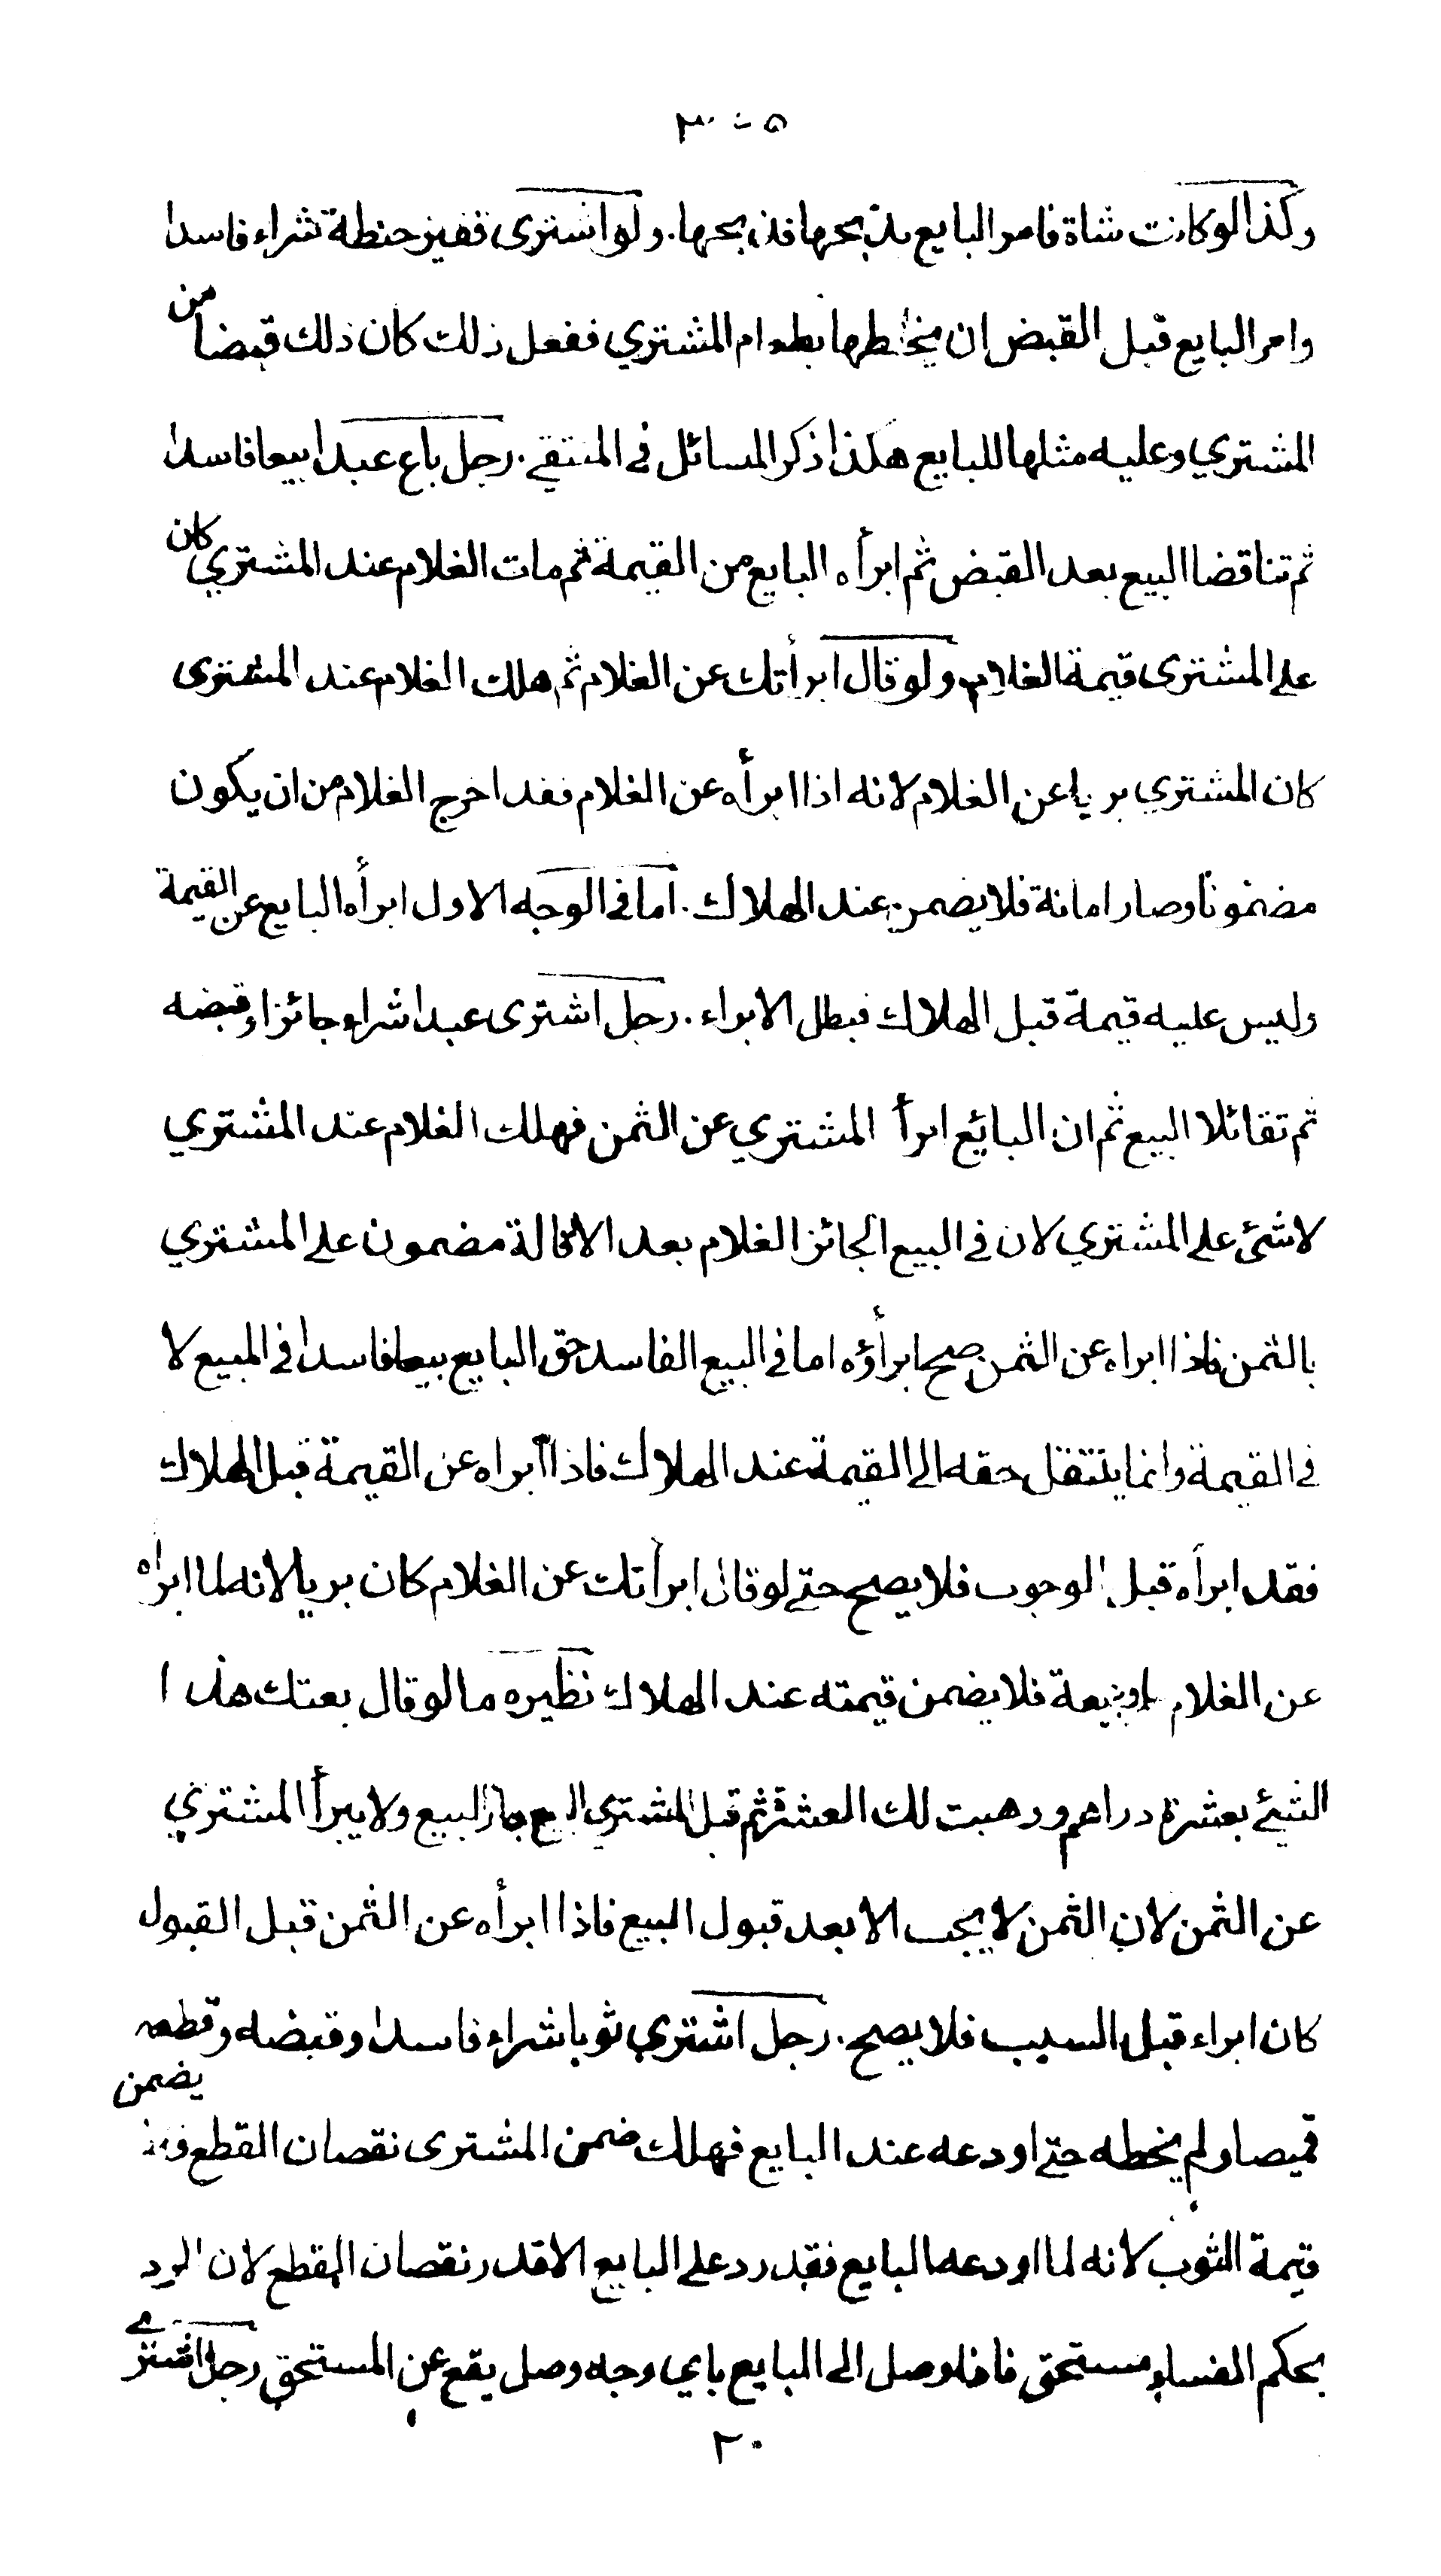 ٣٠٥
وكذا لو كانت شاة فامر البايع بذبحها فذبحها. ولو اشترى قفيز حنطة شراء فاسدا
وامر البايع قبل القبض ان يخلطها بطعام المشتري ففعل ذلك كان ذلك قبضا من
المشتري وعليه مثلها للبايع هكذا ذكر المسائل في المنتقي. رجل باع عبدا بيعا فاسدا
ثم تناقضا البيع بعد القبض ثم ابرأه البايع من القيمة ثم مات الغلام عند المشتري كان
علي المشترى قيمة الغلام ولو قال ابرأتك عن الغلام ثم هلك الغلام عند المشترى
كان المشتري بريا عن الغلام لانه اذا ابرأه عن الغلام فقد اخرج الغلام من ان يكون
مضمونا وصار امانة فلا يضمن عند الهلاك. اما في الوجه الاول ابرأه البايع عن القيمة
وليس عليه قيمة قبل الهلاك فبطل الابراء. رجل اشترى عبدا شراء جائزا وقبضه
ثم تقائلا البيع ثم ان البائع ابرأ المشتري عن الثمن فهلك الغلام عند المشتري
لا شئ علي المشتري لان في البيع الجائز الغلام بعد الاقالة مضمون علي المشتري
بالثمن فاذا ابراه عن الثمن صح ابرأؤه اما في البيع الفاسد حق البايع بيعا فاسدا في المبيع لا
في القيمة وانما ينتقل حقه الى القيمة عند الهلاك فاذا ابراه عن القيمة قبل الهلاك
فقد ابرأه قبل الوجوب فلا يصح حتي لو قال ابرأتك عن الغلام كان بريا لانه لما ابراه
عن الغلام وديعة فلا يضمن قيمته عند الهلاك نظيره ما لو قال بعتك هذا
الشيئ بعشرة دراهم ووهبت لك العشرة ثم قبل المشتري البيع جاز البيع ولا يبرأ المشتري
عن الثمن لان الثمن لا يجب الا بعد قبول البيع فاذا ابرأه عن الثمن قبل القبول
كان ابراء قبل السبب فلا يصح. رجل اشتري ثوبا شراء فاسدا وقبضه وقطعه
قميصا ولم يخطه حتي اودعه عند البايع فهلك ضمن المشترى نقصان القطع ولا يضمن
قيمة الثوب لانه لما اودعه البايع فقد رد علي البايع الا قدر نقصان القطع لان الرد
بحكم الفساد مستحق فاذا وصل الى البايع باي وجه وصل يقع عن المستحق رجل اشتري
٢٠